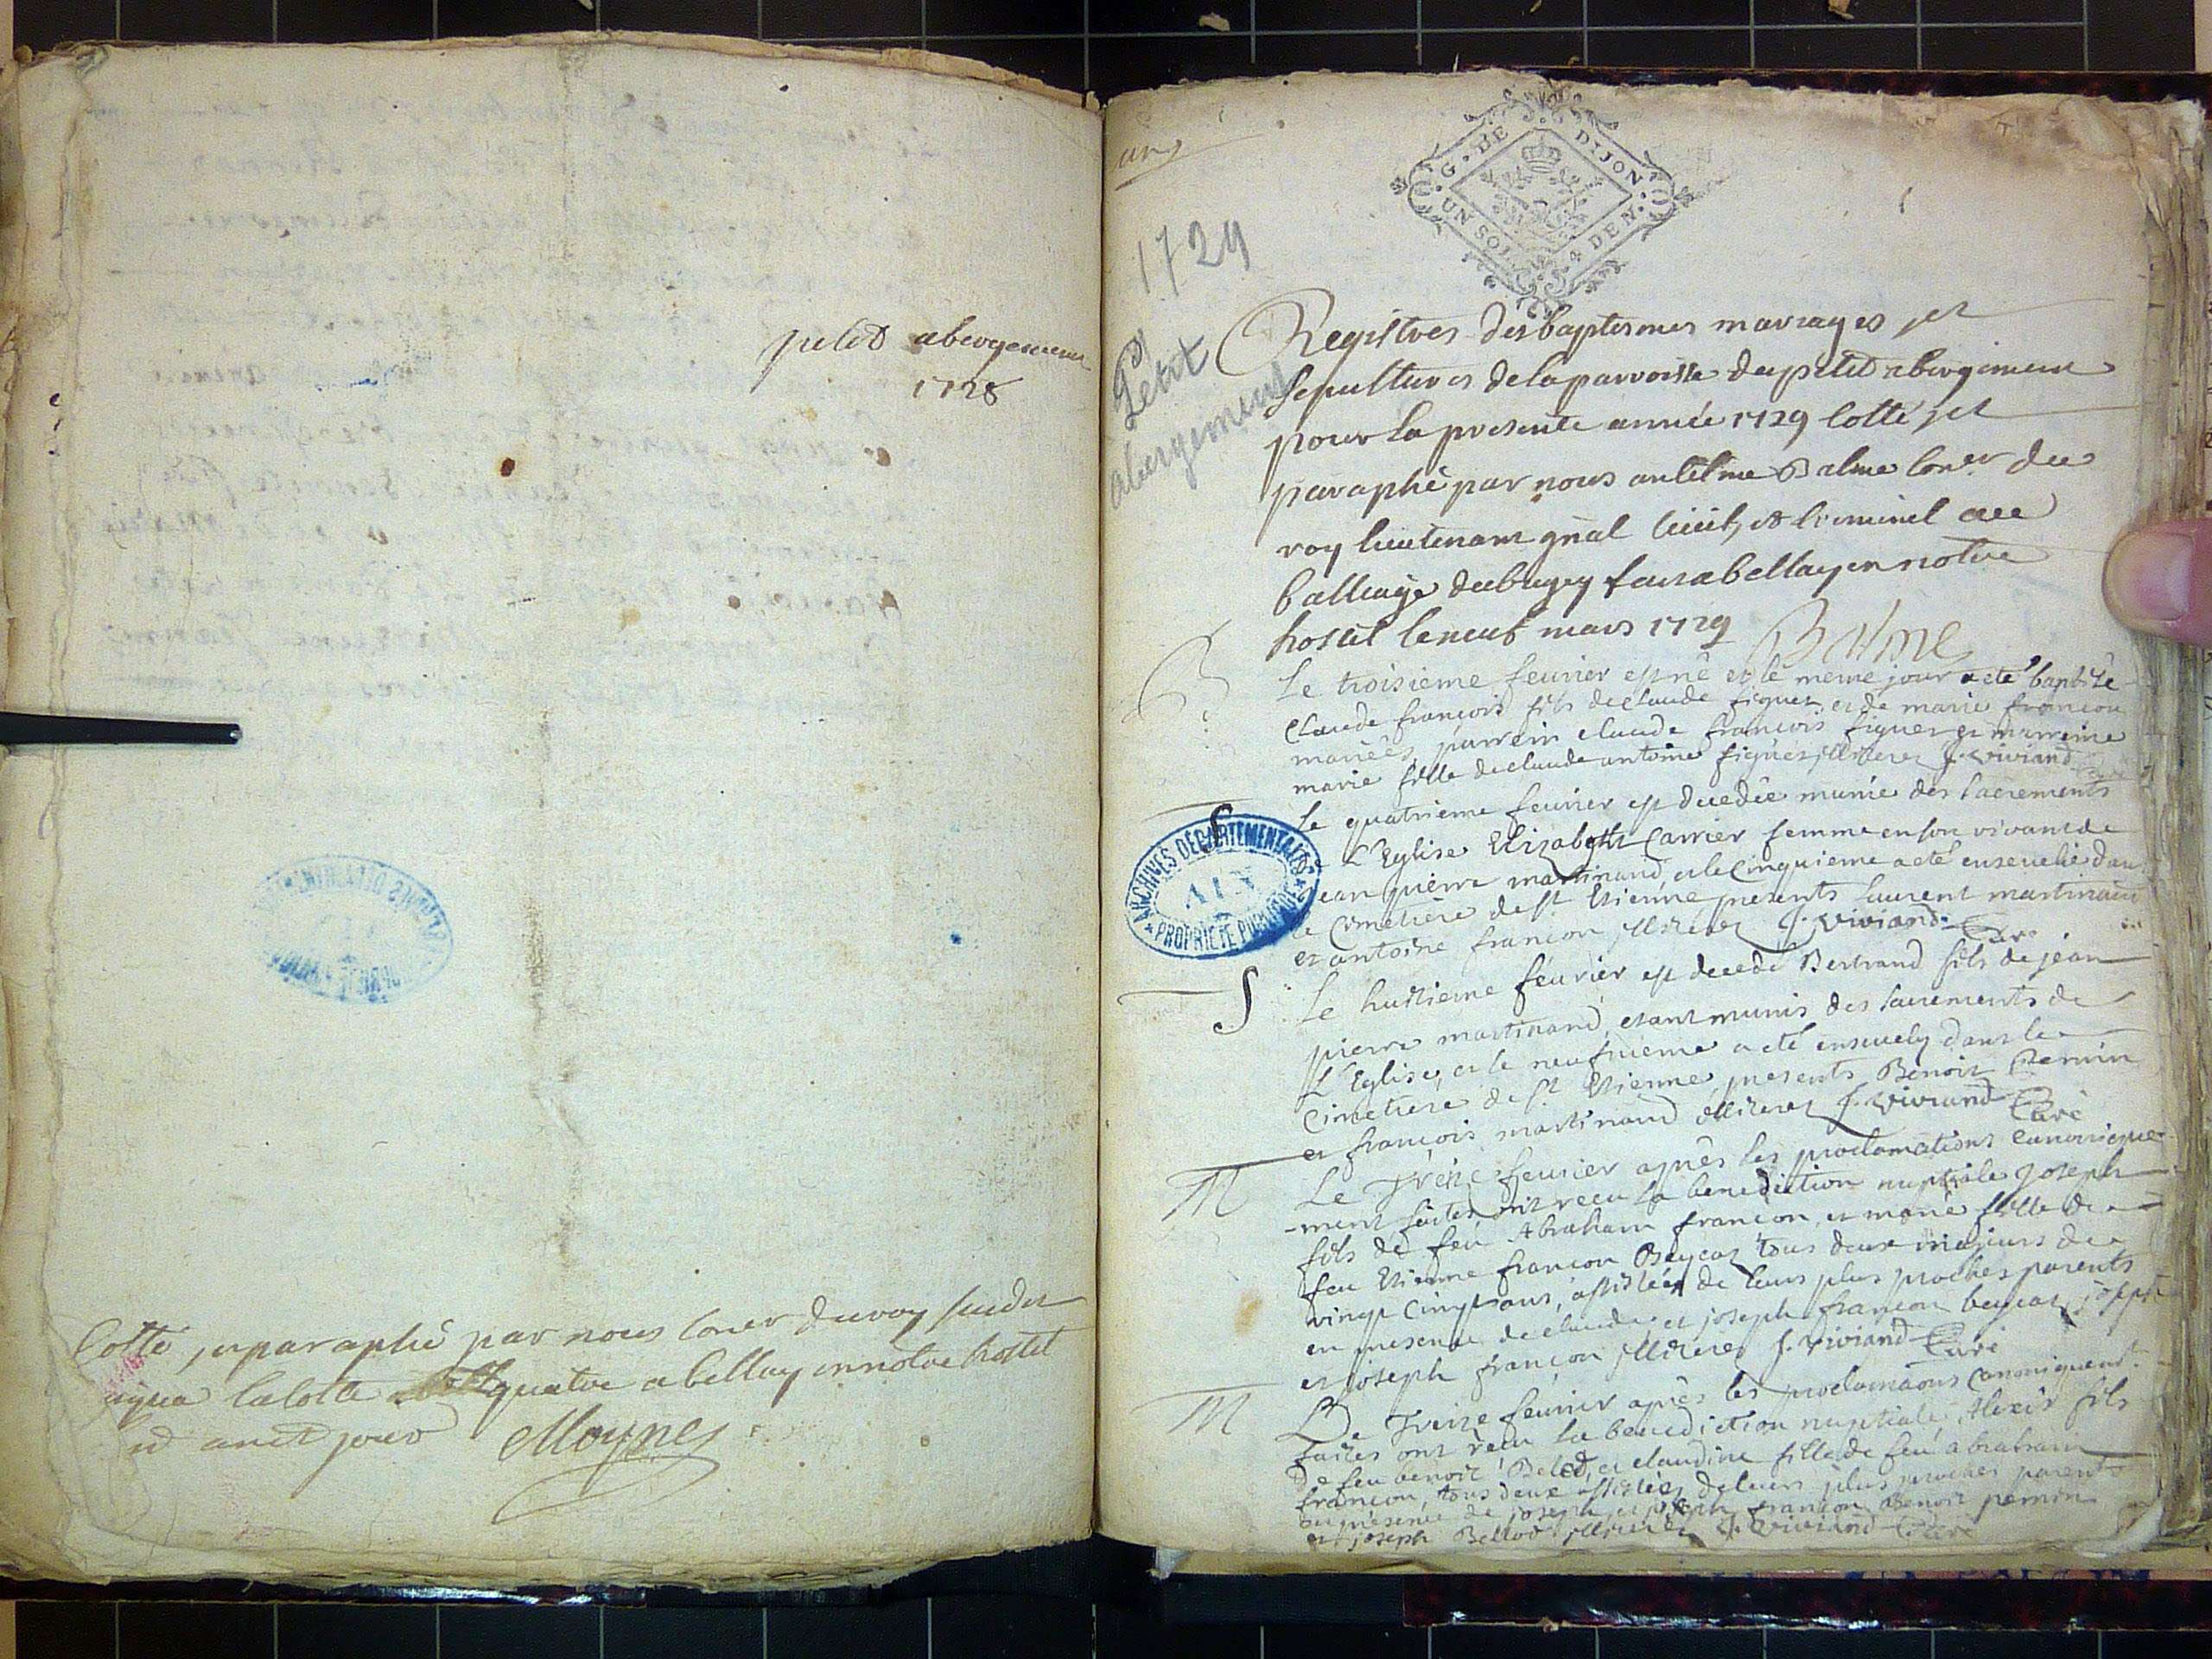 petit abergement
1728
Cotté, et paraphé par nous Coner du roy
quatre a bellay en notre hostel
jour Moyne
un
G. DE DIJON
UN SOL. 4 DEN.
1729
Petit
abergement
Registres des baptesmes mariages et
Sepultures de la parroisse du petit abergement
pour la presente année 1729 Cotté et
paraphé par nous antelme Balme Coner du
roy lieutenant gnal Civil, et Criminel au
balliage du bugey fait a bellay en notre
hostel le neuf mars 1729 Balme
B
Le troisieme fevrier est né et le meme jour a eté baptisé
Claude françois fils de claude figuet, et de marie françon
mariées, parrein claude françois figuet et marreine
marie fille de claude antoine figuet, illiterez J. Viviand Curé
S
Le quatrieme fevrier est decedée munie des sacrements
de L'Eglise Elizabeth Carrier femme en son vivant de
jean pierre martinand, et le Cinquieme a eté ensevelie dans
le Cimetiere de st Etienne presents laurent martinand
et antoine françon illiterez J. Viviand Curé
ARCHIVES DÉPARTEMENTALES
AIN
PROPRIÉTÉ PUBLIQUE
S
Le huitieme fevrier est decedé Bertrand fils de jean
pierre martinand, etant munis des sacrements de
L'Eglise, et le neufvieme a eté ensevely dans le
Cimetiere de st Etienne, presents Benoit Pernin
et françois martinand illiterez J. Viviand Curé
M
Le Treize fevrier après les proclamations canonique-
-ment faites ont reçu la benediction nuptiale Joseph
fils de feu Abraham françon, et marie fille de
feu Etienne françon Beycat tous deux majeurs de
vingt Cinq ans, assistées de leurs plus proches parents
en presence de claude et joseph françon beycat, joseph
et joseph françon illiterez J. Viviand Curé
M
Le Treize fevrier après les proclamaons Canoniquemt
faites ont reçu la benediction nuptiale Alexis fils
de feu benoit Belod, et claudine fille de feu abraham
françon, tous deux assistées de leurs plus proches parents
en presence de joseph et joseph françon Benoit pernin
et joseph Bellod illiterez J. Viviand Curé